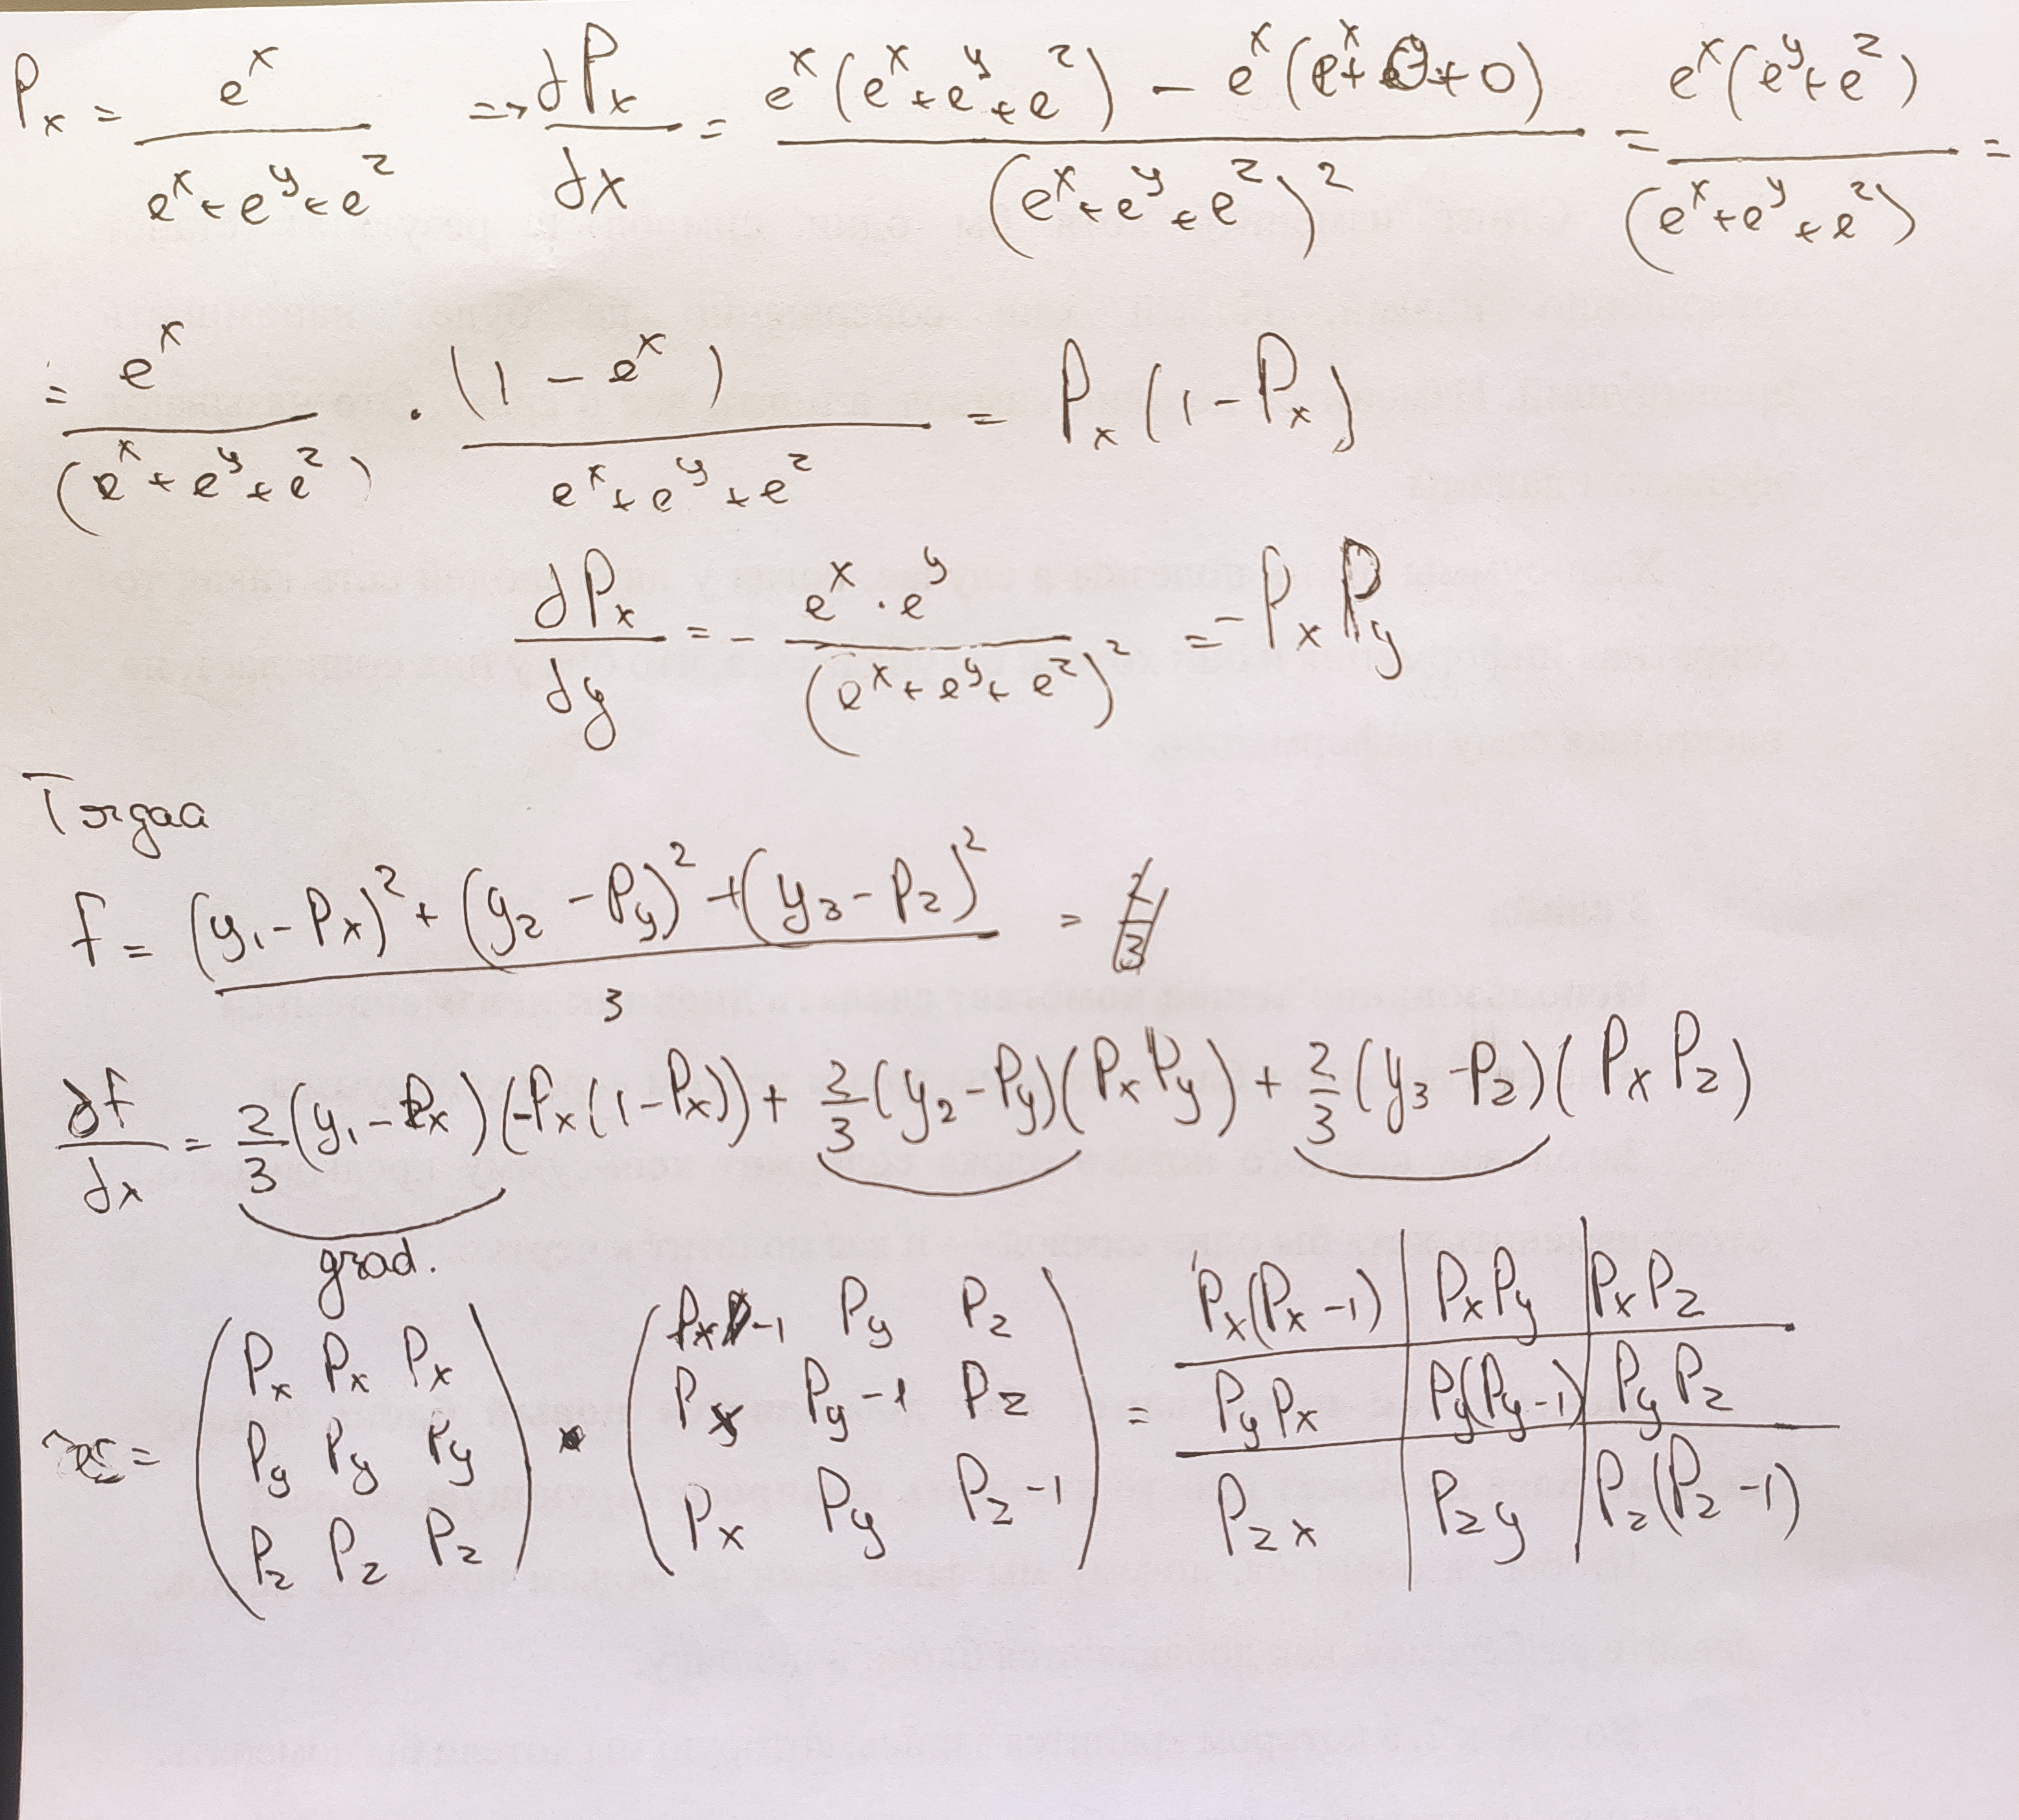 P_x = e^x / (e^x + e^y + e^z) => ∂P_x/∂x = (e^x(e^x + e^y + e^z) − e^x(e^x + 0 + 0)) / (e^x + e^y + e^z)^2 = e^x(e^y + e^z) / (e^x + e^y + e^z) =
= e^x / (e^x + e^y + e^z) · (1 − e^x) / (e^x + e^y + e^z) = P_x(1 − P_x)
∂P_x/∂y = − e^x · e^y / (e^x + e^y + e^z)^2 = − P_x P_y
Тогдаа
f = ((y_1 − P_x)^2 + (y_2 − P_y)^2 + (y_3 − P_z)^2) / 3 =
∂f/∂x = 2/3 (y_1 − P_x)(−P_x(1 − P_x)) + 2/3 (y_2 − P_y)(P_x P_y) + 2/3 (y_3 − P_z)(P_x P_z)
grad.
= ( P_x P_x P_x ) · ( P_x −1 P_y P_z ) = P_x(P_x −1) | P_x P_y | P_x P_z
( P_y P_y P_y ) ( P_x P_y −1 P_z ) P_y P_x | P_y(P_y −1) | P_y P_z
( P_z P_z P_z ) ( P_x P_y P_z −1 ) P_z x | P_z y | P_z(P_z −1)